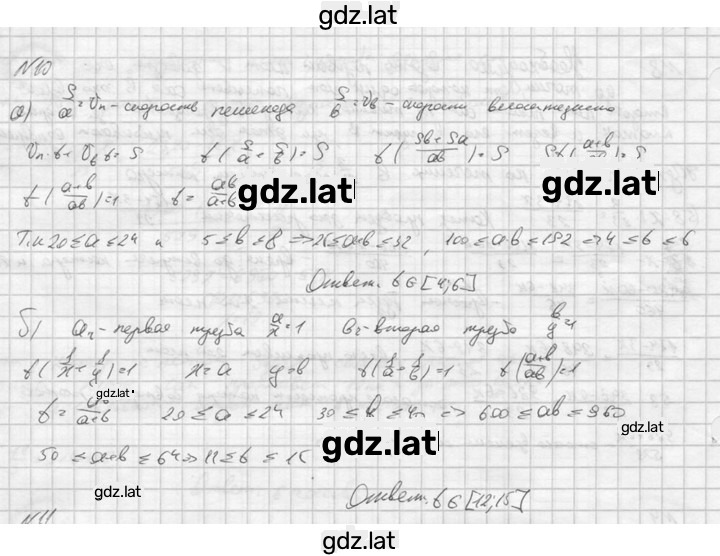 gdz.lat
N10
а) S/a = Vп - скорость пешехода S/b = Vв - скорость велосипедиста
Vп·t + Vв t = S t(S/a + S/b) = S t((Sb + Sa)/ab) = S St((a+b)/ ) = S
gdz.lat gdz.lat
t·((a+b)/ab) = 1 t = ab/(a+b)
Т.к 20 ≤ a ≤ 24 и 5 ≤ b ≤ 8 => 25 ≤ a+b ≤ 32, 100 ≤ ab ≤ 192 => 4 ≤ t ≤ 6
Ответ. t ∈ [4;6]
б) - первая труба a/x = 1 - вторая труба b/y = 1
t(1/x + 1/y) = 1 x = a y = b t(1/a + 1/b) = 1 t((a+b)/ab) = 1
gdz.lat
t = /(a+b) 20 ≤ a ≤ 24 30 ≤ b ≤ 40 => 600 ≤ ab ≤ 960
gdz.lat gdz.lat
50 ≤ a+b ≤ 64 => 12 ≤ t ≤ 15
gdz.lat
Ответ. t ∈ [12;15]
N11
gdz.lat